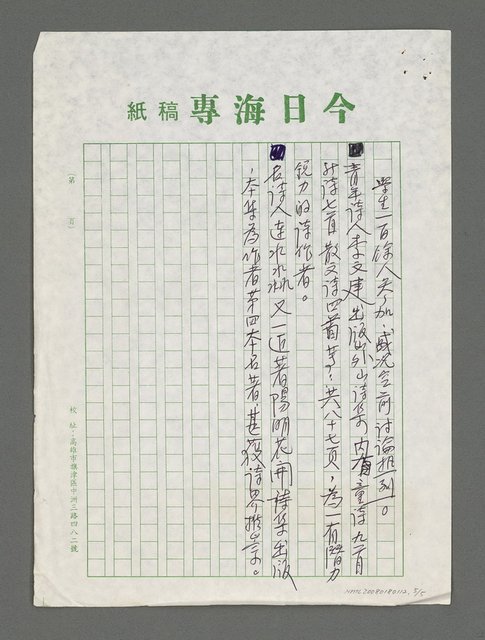 今日海專 稿紙
學生一百餘人參加，盛況空前討論熱烈。
青年詩人李文建出版山外山詩集，內有童詩九首
新詩七首散文詩四首等，共八十七頁，為一有潛力
銳力的詩作者。
名詩人連水淼又一近著陽明花開詩集出版
，本集為作者第四本名著，甚獲詩界推崇。
（第 頁）
校址：高雄市旗津區中洲三路四八二號
NMTL20080180112, 5/5